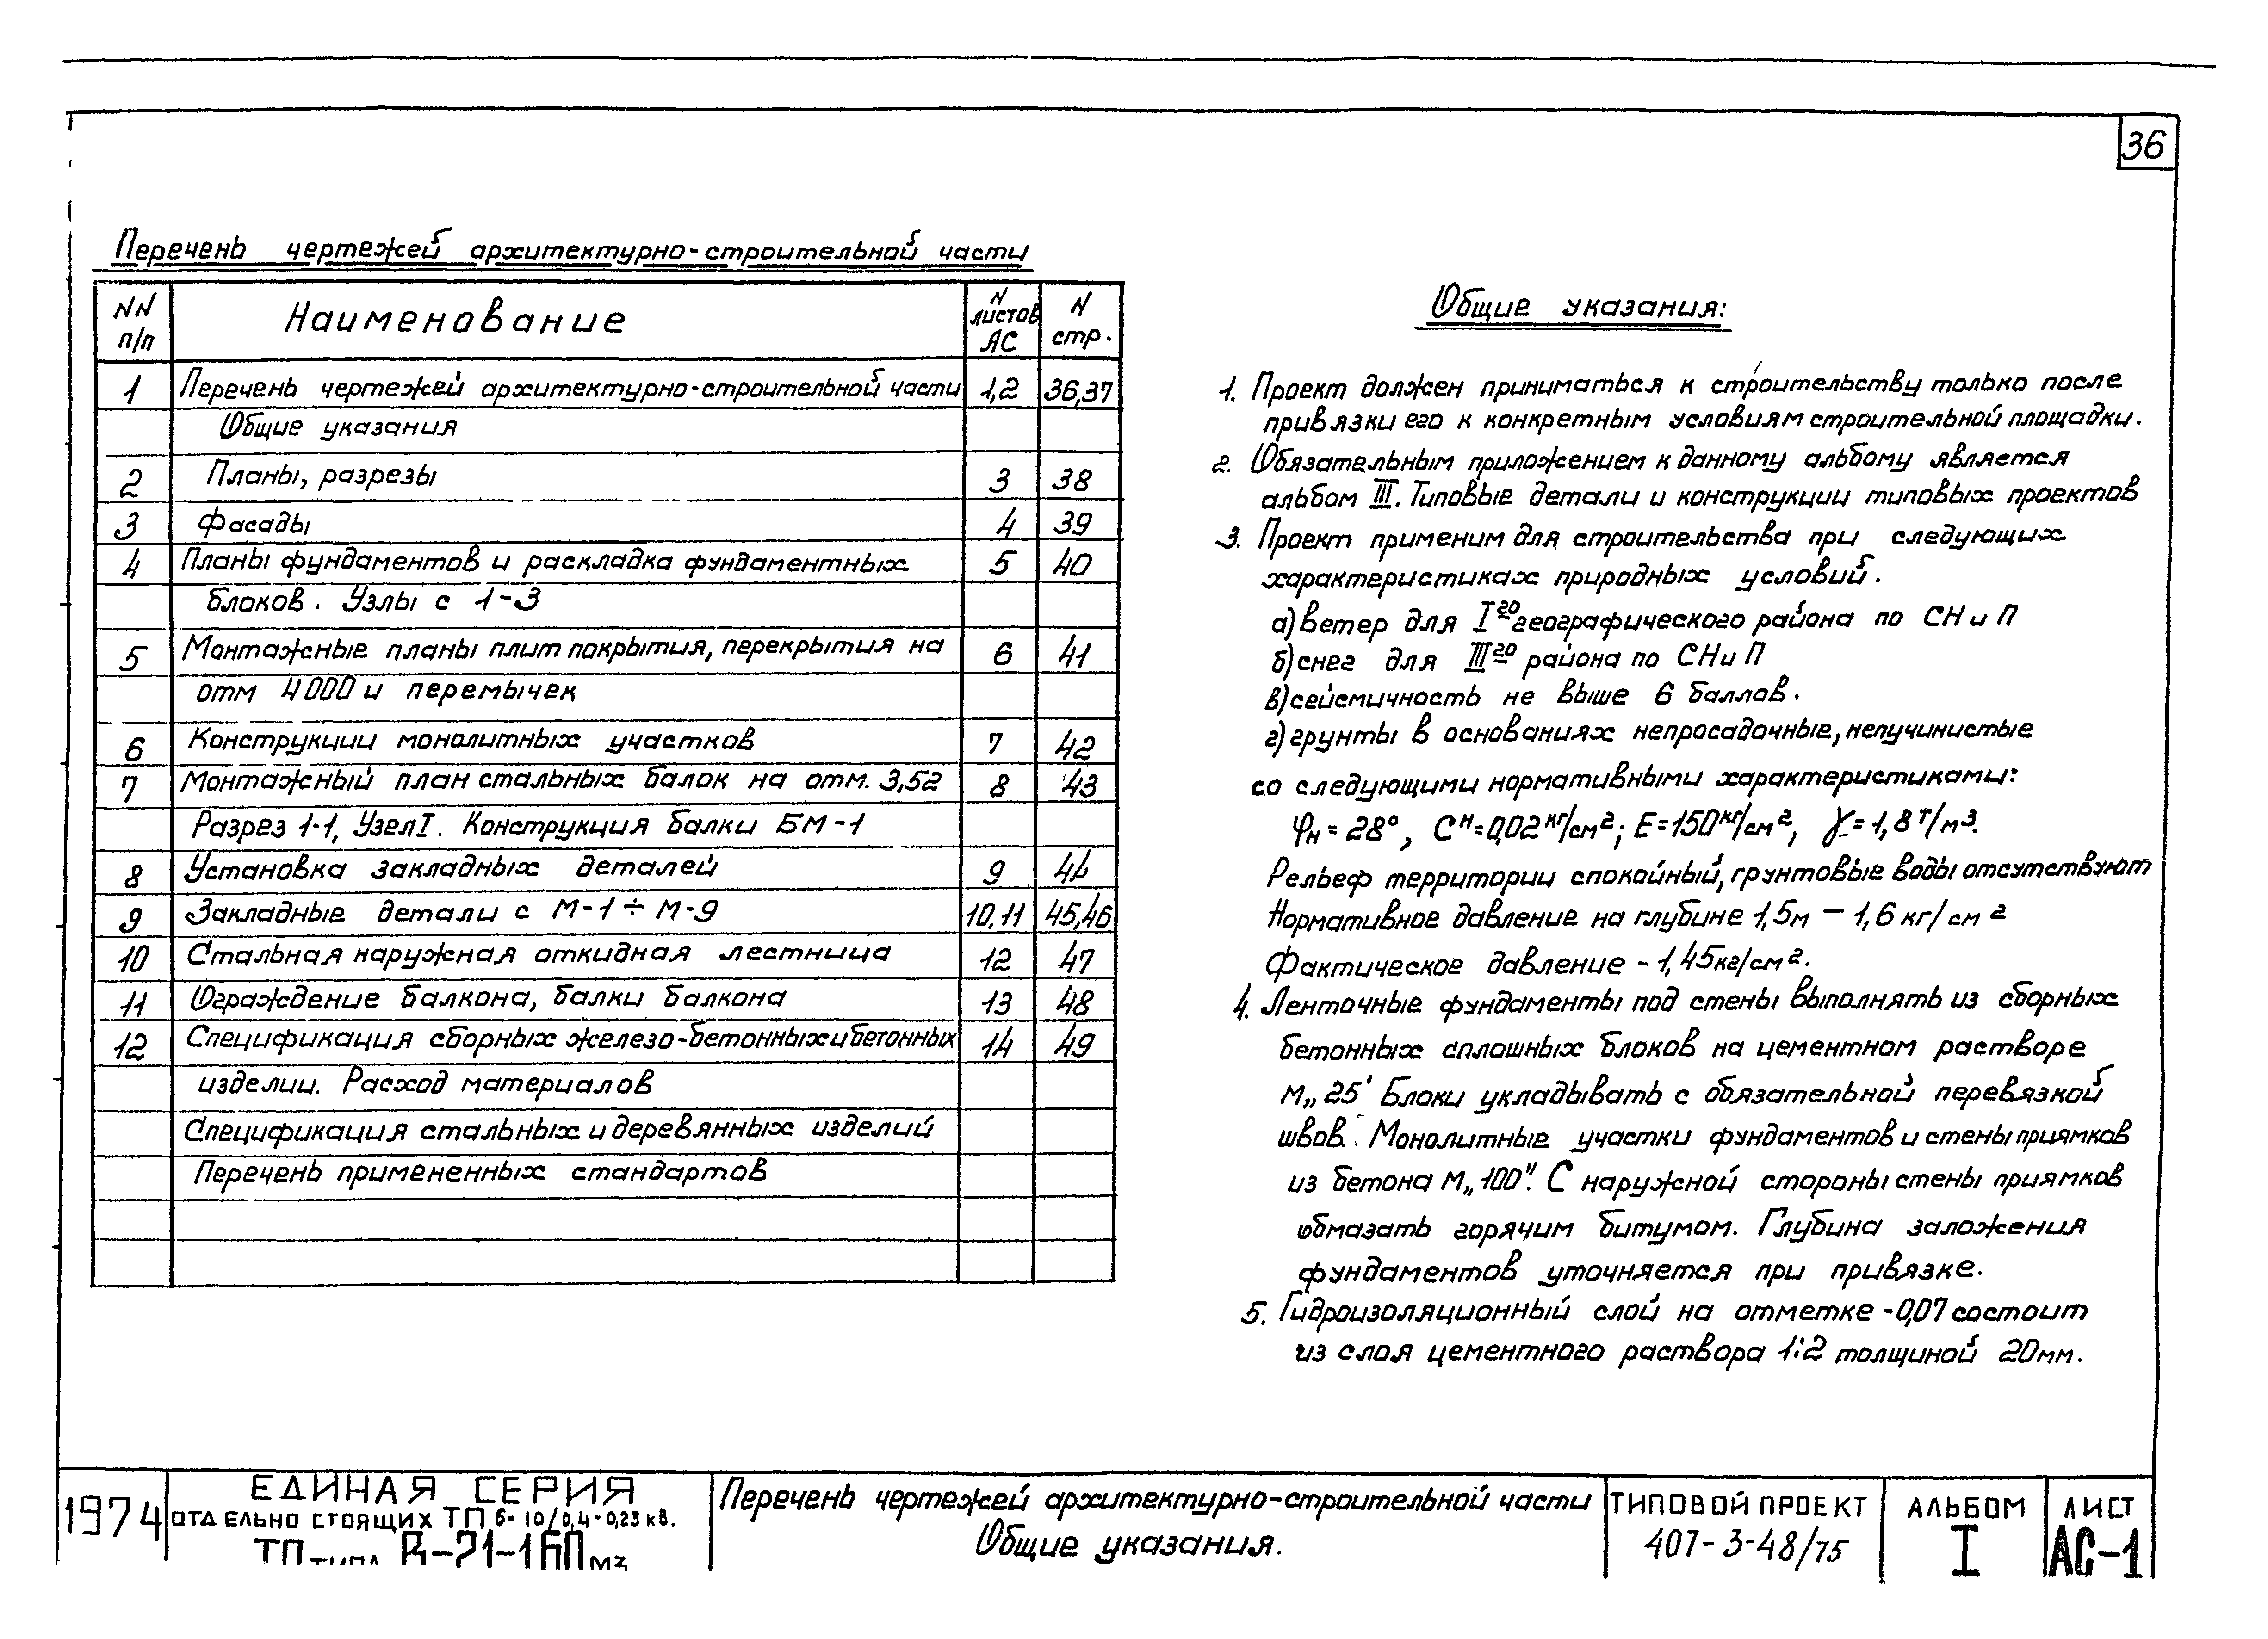 36
Перечень чертежей архитектурно-строительной части
NN п/п Наименование N листов АС N стр.
1 Перечень чертежей архитектурно-строительной части 1,2 36,37
Общие указания
2 Планы, разрезы 3 38
3 Фасады 4 39
4 Планы фундаментов и раскладка фундаментных 5 40
блоков. Узлы с 1-3
5 Монтажные планы плит покрытия, перекрытия на 6 41
отм 4000 и перемычек
6 Конструкции монолитных участков 7 42
7 Монтажный план стальных балок на отм. 3,52 8 43
Разрез 1-1, Узел I. Конструкция балки БМ-1
8 Установка закладных деталей 9 44
9 Закладные детали с М-1÷М-9 10,11 45,46
10 Стальная наружная откидная лестница 12 47
11 Ограждение балкона, балки балкона 13 48
12 Спецификация сборных железо-бетонных и бетонных 14 49
изделии. Расход материалов
Спецификация стальных и деревянных изделий
Перечень примененных стандартов
Общие указания:
1. Проект должен приниматься к строительству только после
привязки его к конкретным условиям строительной площадки.
2. Обязательным приложением к данному альбому является
альбом III. Типовые детали и конструкции типовых проектов
3. Проект применим для строительства при следующих
характеристиках природных условий.
а) ветер для I го географического района по СН и П
б) снег для III го района по СН и П
в) сейсмичность не выше 6 баллов.
г) грунты в основаниях непросадочные, непучинистые
со следующими нормативными характеристиками:
φн = 28°, Cн = 0,02 кг/см²; E = 150 кг/см², γ = 1,8 т/м³.
Рельеф территории спокойный, грунтовые воды отсутствуют
Нормативное давление на глубине 1,5м – 1,6 кг/см²
Фактическое давление - 1,45 кг/см².
4. Ленточные фундаменты под стены выполнять из сборных
бетонных сплошных блоков на цементном растворе
М„25' Блоки укладывать с обязательной перевязкой
швов. Монолитные участки фундаментов и стены приямков
из бетона М„100". С наружной стороны стены приямков
обмазать горячим битумом. Глубина заложения
фундаментов уточняется при привязке.
5. Гидроизоляционный слой на отметке -0,07 состоит
из слоя цементного раствора 1:2 толщиной 20мм.
1974
ЕДИНАЯ СЕРИЯ
ОТДЕЛЬНО СТОЯЩИХ ТП 6-10/0,4-0,23 кв.
ТП типа В-21-160 м3
Перечень чертежей архитектурно-строительной части
Общие указания.
ТИПОВОЙ ПРОЕКТ
407-3-48/75
АЛЬБОМ
I
ЛИСТ
АС-1